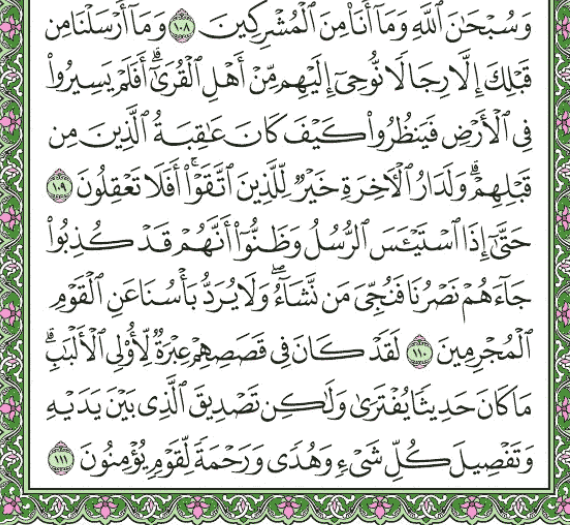 وَسُبْحَٰنَ ٱللَّهِ وَمَآ أَنَا۠ مِنَ ٱلْمُشْرِكِينَ ١٠٨ وَمَآ أَرْسَلْنَا مِن
قَبْلِكَ إِلَّا رِجَالًا نُّوحِىٓ إِلَيْهِم مِّنْ أَهْلِ ٱلْقُرَىٰٓ ۗ أَفَلَمْ يَسِيرُوا۟
فِى ٱلْأَرْضِ فَيَنظُرُوا۟ كَيْفَ كَانَ عَٰقِبَةُ ٱلَّذِينَ مِن
قَبْلِهِمْ ۗ وَلَدَارُ ٱلْءَاخِرَةِ خَيْرٌ لِّلَّذِينَ ٱتَّقَوْا۟ ۗ أَفَلَا تَعْقِلُونَ ١٠٩
حَتَّىٰٓ إِذَا ٱسْتَيْـَٔسَ ٱلرُّسُلُ وَظَنُّوٓا۟ أَنَّهُمْ قَدْ كُذِبُوا۟
جَآءَهُمْ نَصْرُنَا فَنُجِّىَ مَن نَّشَآءُ ۖ وَلَا يُرَدُّ بَأْسُنَا عَنِ ٱلْقَوْمِ
ٱلْمُجْرِمِينَ ١١٠ لَقَدْ كَانَ فِى قَصَصِهِمْ عِبْرَةٌ لِّأُو۟لِى ٱلْأَلْبَٰبِ ۗ
مَا كَانَ حَدِيثًا يُفْتَرَىٰ وَلَٰكِن تَصْدِيقَ ٱلَّذِى بَيْنَ يَدَيْهِ
وَتَفْصِيلَ كُلِّ شَىْءٍ وَهُدًى وَرَحْمَةً لِّقَوْمٍ يُؤْمِنُونَ ١١١